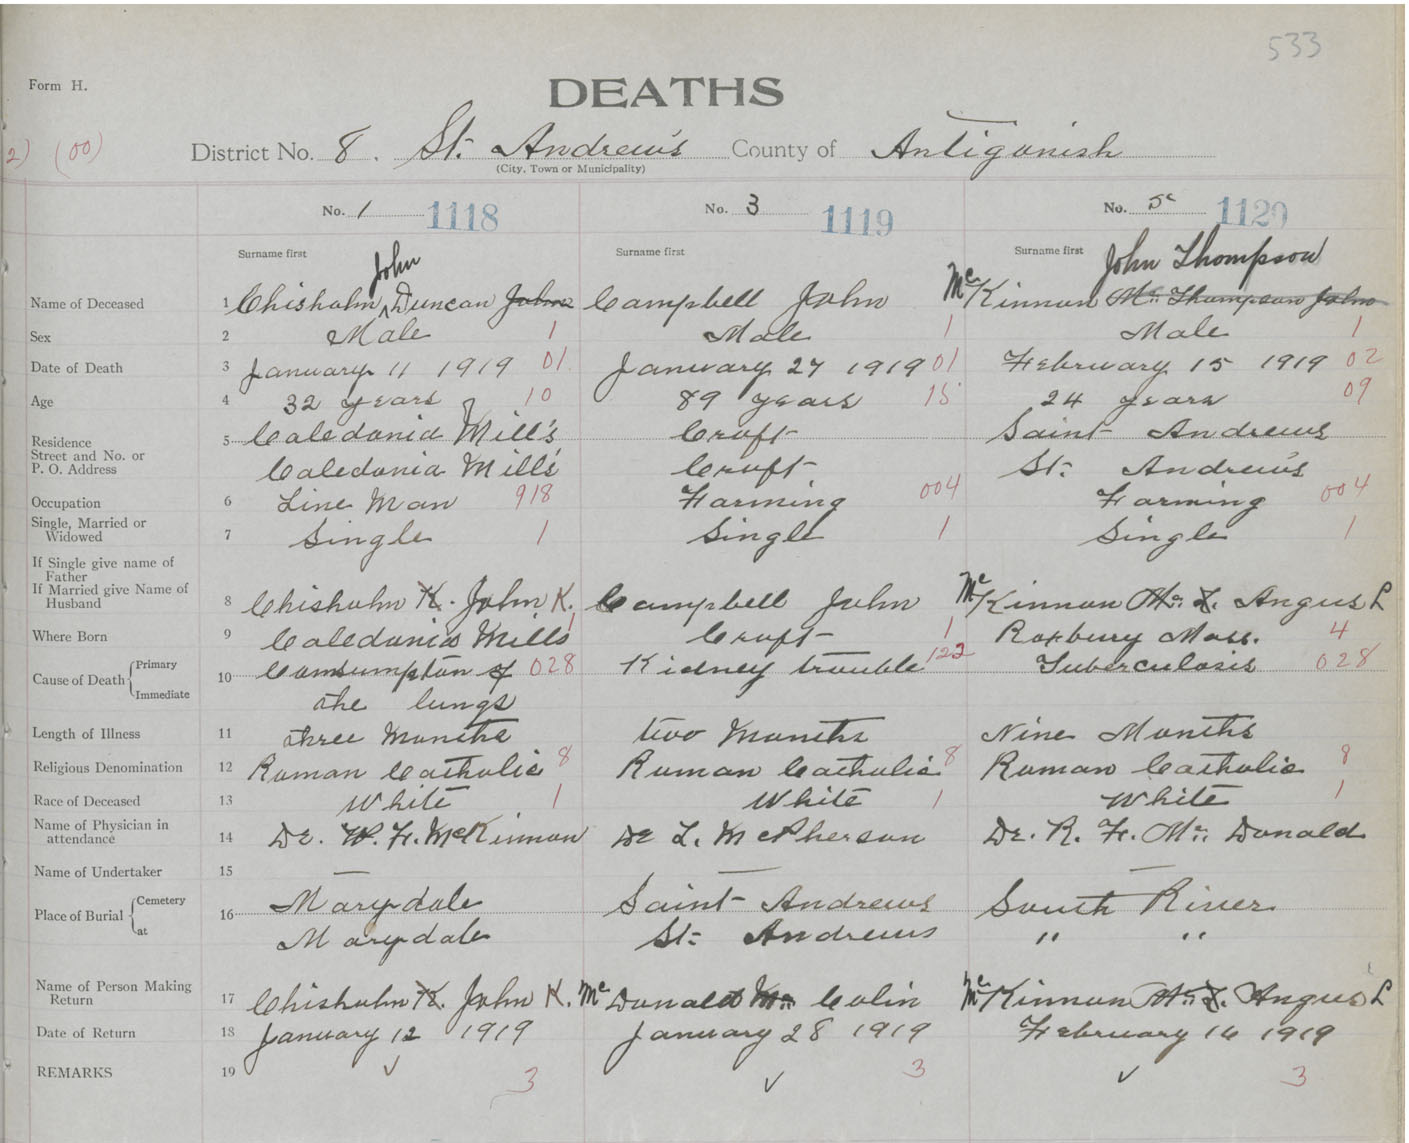 533
Form H.
DEATHS
2) (00) District No. 8. St. Andrew's County of Antigonish
(City, Town or Municipality)
No. 1 1118 No. 3 1119 No. 5 1120
Surname first Surname first Surname first
John John Thompson
Name of Deceased 1 Chisholm Duncan John Campbell John McKinnon Mc Thompson John
Sex 2 Male 1 Male 1 Male 1
Date of Death 3 January 11 1919 01 January 27 1919 01 February 15 1919 02
Age 4 32 years 10 89 years 15 24 years 09
Residence 5 Caledonia Mill's Croft Saint Andrews
Street and No. or
P. O. Address Caledonia Mill's Croft St. Andrew's
Occupation 6 Line Man 918 Farming 004 Farming 004
Single, Married or
Widowed 7 Single 1 Single 1 Single 1
If Single give name of
Father
If Married give Name of
Husband 8 Chisholm K. John K. Campbell John McKinnon Mc L. Angus L
Where Born 9 Caledonia Mills 1 Croft 1 Roxbury Mass. 4
Cause of Death Primary 10 Comsumption of 028 Kidney trouble 122 Tuberculosis 028
Immediate the lungs
Length of Illness 11 three Months two Months Nine Months
Religious Denomination 12 Roman Catholic 8 Roman Catholic 8 Roman Catholic 8
Race of Deceased 13 White 1 White 1 White 1
Name of Physician in
attendance 14 Dr. W. F. McKinnon Dr L. McPherson Dr. R. F. Mc Donald
Name of Undertaker 15 — — —
Place of Burial Cemetery 16 Marydale Saint Andrews South River
at Marydale St. Andrews " "
Name of Person Making
Return 17 Chisholm K. John K. McDonald Mc Colin McKinnon Mc L. Angus L
Date of Return 18 January 12 1919 January 28 1919 February 16 1919
REMARKS 19 ✓ 3 ✓ 3 ✓ 3